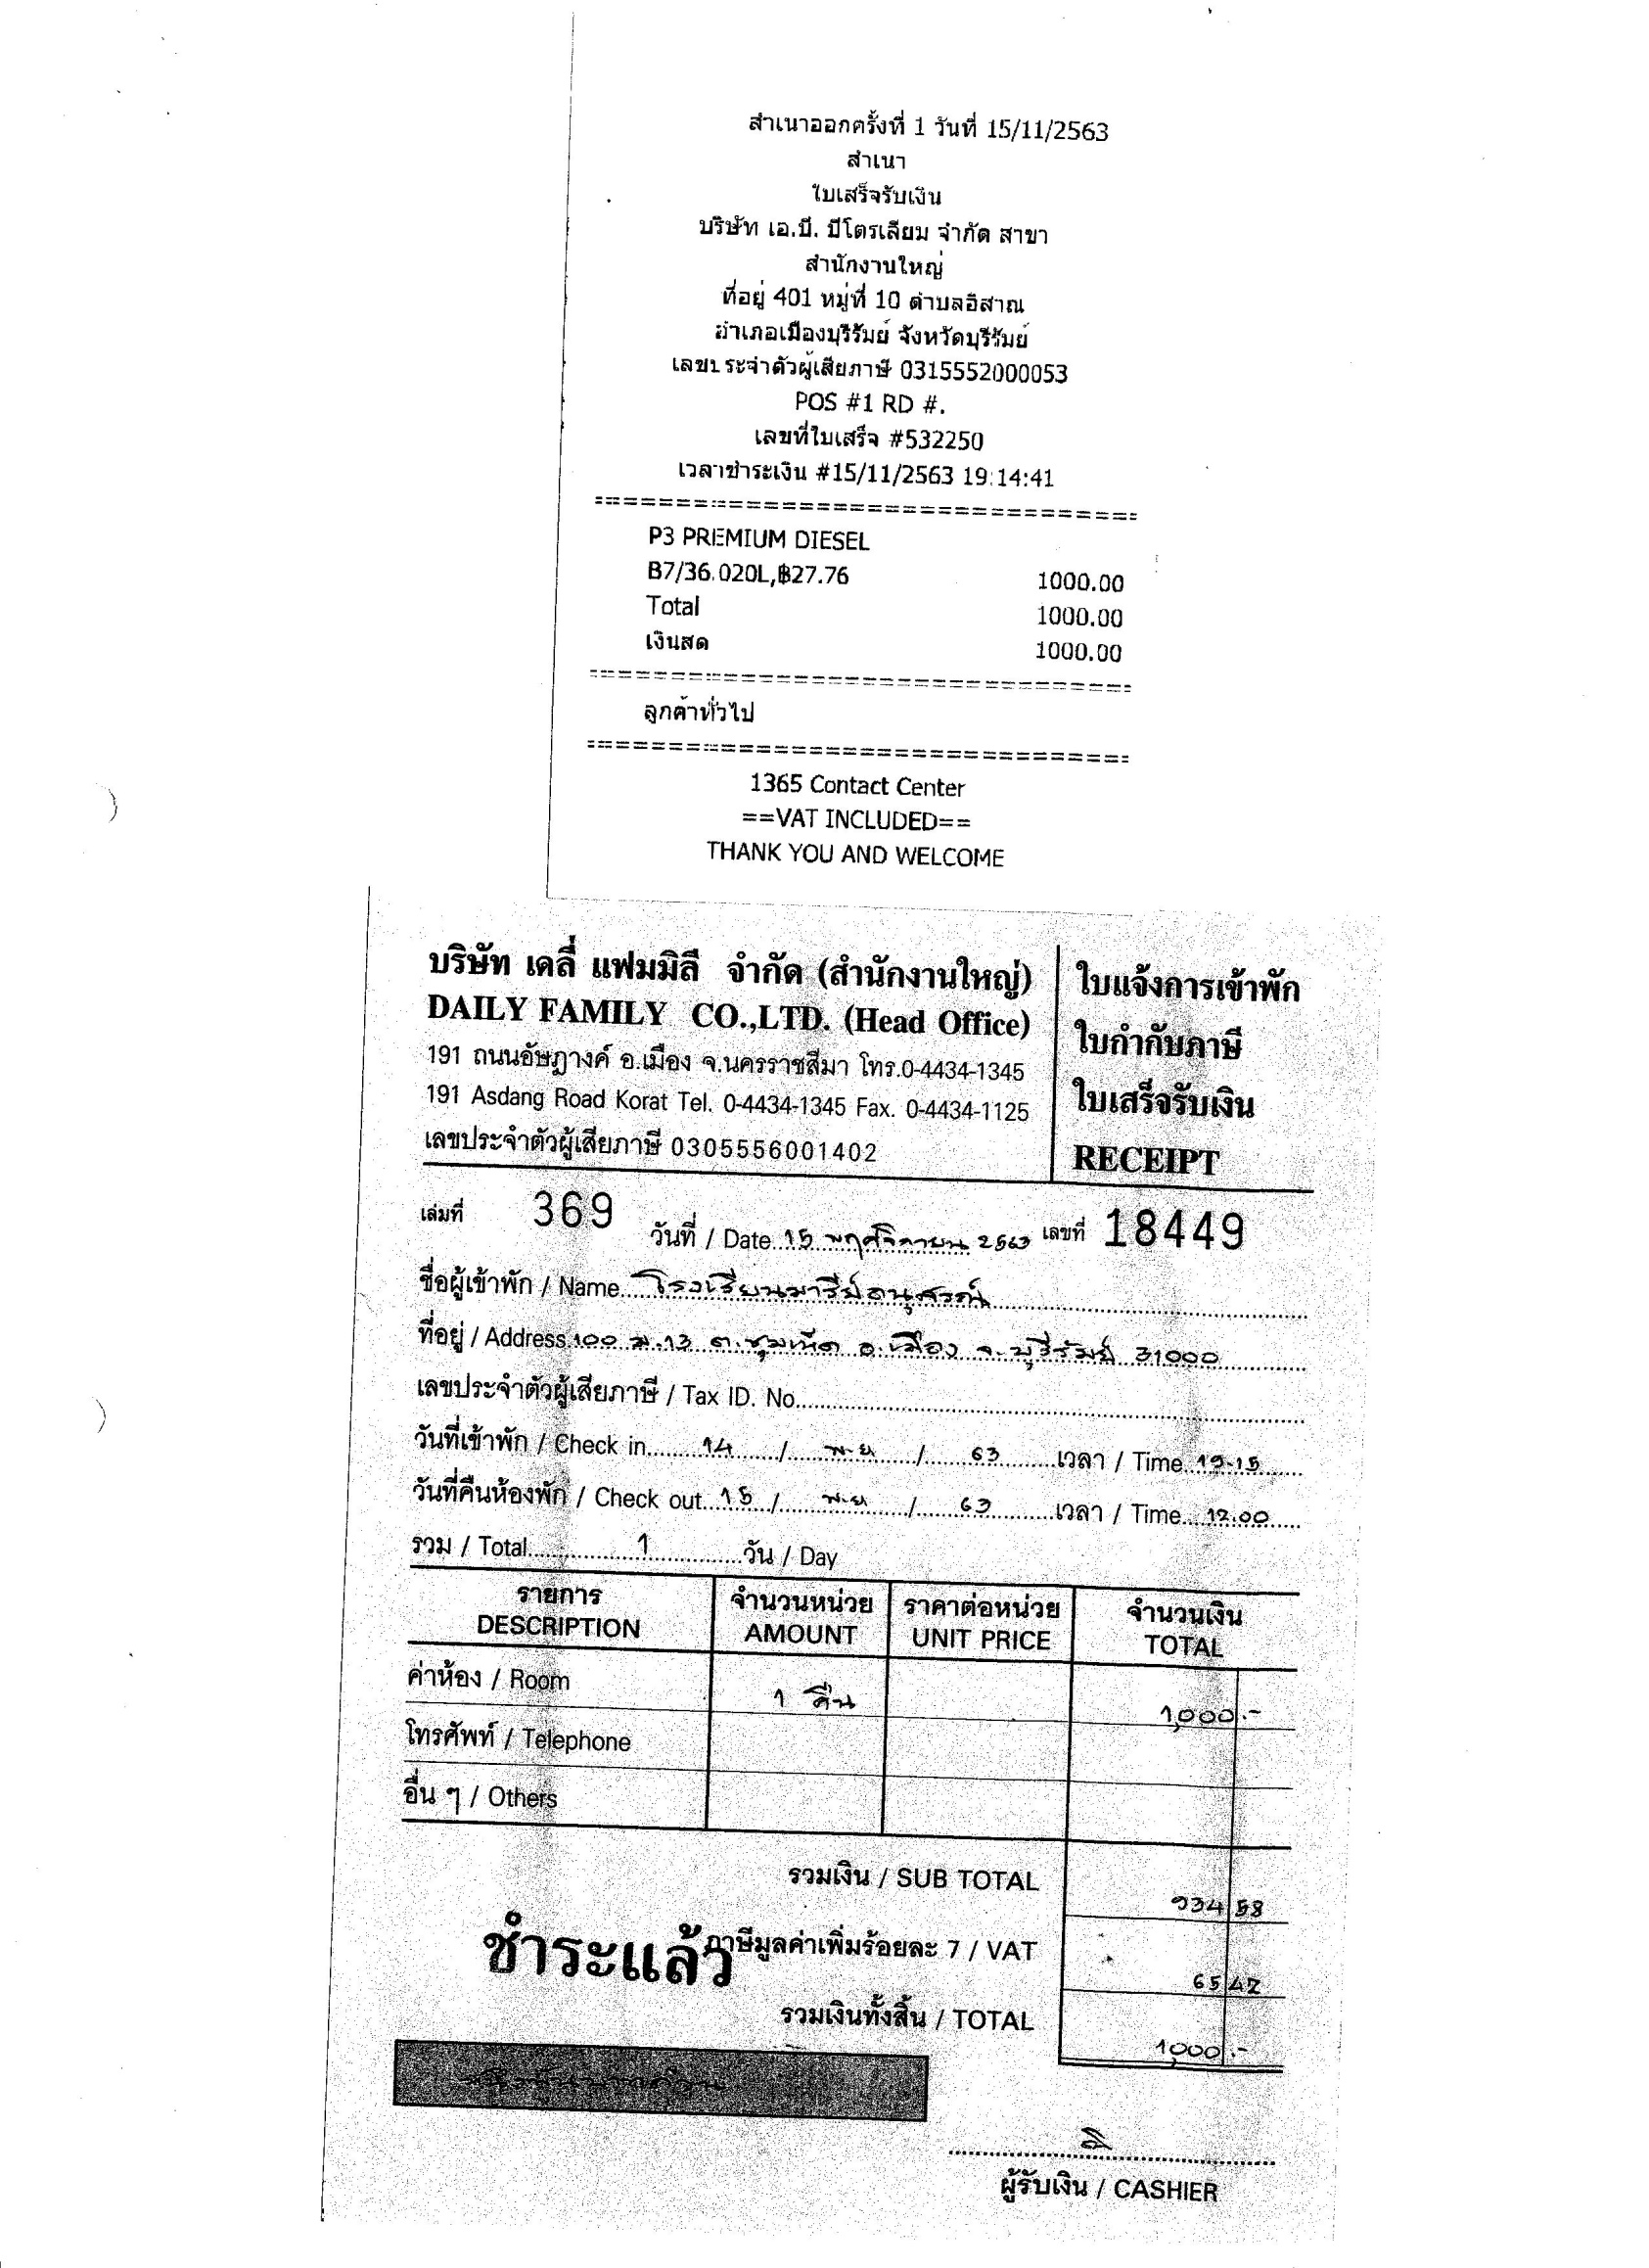 สำเนาออกครั้งที่ 1 วันที่ 15/11/2563
สำเนา
ใบเสร็จรับเงิน
บริษัท เอ.บี. ปิโตรเลียม จำกัด สาขา
สำนักงานใหญ่
ที่อยู่ 401 หมู่ที่ 10 ตำบลอิสาณ
อำเภอเมืองบุรีรัมย์ จังหวัดบุรีรัมย์
เลขประจำตัวผู้เสียภาษี 0315552000053
POS #1 RD #.
เลขที่ใบเสร็จ #532250
เวลาชำระเงิน #15/11/2563 19:14:41
P3 PREMIUM DIESEL
B7/36.020L,฿27.76 1000.00
Total 1000.00
เงินสด 1000.00
ลูกค้าทั่วไป
1365 Contact Center
==VAT INCLUDED==
THANK YOU AND WELCOME
บริษัท เดลี่ แฟมมิลี จำกัด (สำนักงานใหญ่) ใบแจ้งการเข้าพัก
DAILY FAMILY CO.,LTD. (Head Office) ใบกำกับภาษี
191 ถนนอัษฎางค์ อ.เมือง จ.นครราชสีมา โทร.0-4434-1345
191 Asdang Road Korat Tel. 0-4434-1345 Fax. 0-4434-1125 ใบเสร็จรับเงิน
เลขประจำตัวผู้เสียภาษี 0305556001402 RECEIPT
เล่มที่ 369 วันที่ / Date 15 พฤศจิกายน 2563 เลขที่ 18449
ชื่อผู้เข้าพัก / Name โรงเรียนมารีย์อนุสรณ์
ที่อยู่ / Address 100 ม.13 ต.ชุมเห็ด อ.เมือง จ.บุรีรัมย์ 31000
เลขประจำตัวผู้เสียภาษี / Tax ID. No.
วันที่เข้าพัก / Check in 14 / พ.ย / 63 เวลา / Time 19.15
วันที่คืนห้องพัก / Check out 15 / พ.ย / 63 เวลา / Time 12.00
รวม / Total 1 วัน / Day
รายการ จำนวนหน่วย ราคาต่อหน่วย จำนวนเงิน
DESCRIPTION AMOUNT UNIT PRICE TOTAL
ค่าห้อง / Room 1 คืน 1,000.-
โทรศัพท์ / Telephone
อื่น ๆ / Others
รวมเงิน / SUB TOTAL 934 58
ชำระแล้ว ภาษีมูลค่าเพิ่มร้อยละ 7 / VAT 65 42
รวมเงินทั้งสิ้น / TOTAL 1,000.-
ผู้รับเงิน / CASHIER